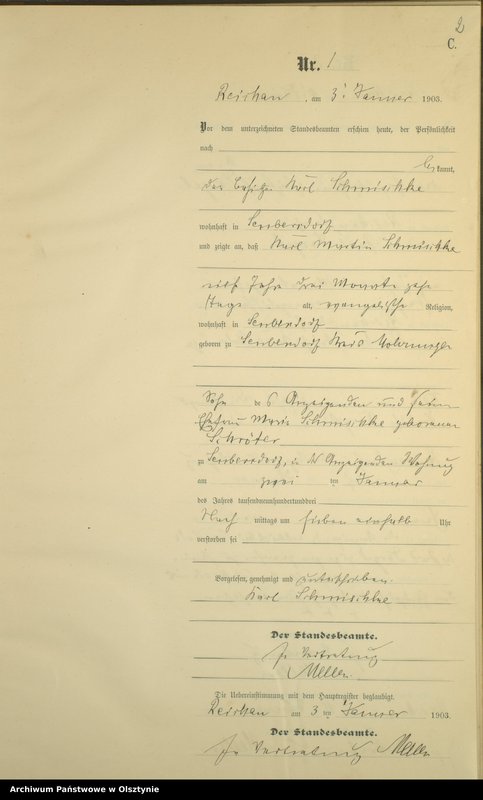 2
C.
Nr. 1
Reichau, am 3. Januar 1903.
Vor dem unterzeichneten Standesbeamten erschien heute, der Persönlichkeit
nach
be kannt,
der Besitzer Karl Schmischke
wohnhaft in
und zeigte an, daß Karl Martin Schmischke
Jahre drei Monate zehn
Tage alt, evangelischer Religion,
wohnhaft in
geboren zu Kreis Mohrungen
Sohn des Anzeigenden und seiner
Ehefrau Maria Schmischke geborenen
Schröter
zu in des Anzeigenden Wohnung
am zwei ten Januar
des Jahres tausendneunhundertunddrei
Nach mittags um sieben einhalb Uhr
verstorben sei
Vorgelesen, genehmigt und unterschrieben.
Karl Schmischke
Der Standesbeamte.
In Vertretung
Die Uebereinstimmung mit dem Hauptregister beglaubigt.
Reichau am 3 ten Januar 1903.
Der Standesbeamte.
In Vertretung
Archiwum Państwowe w Olsztynie